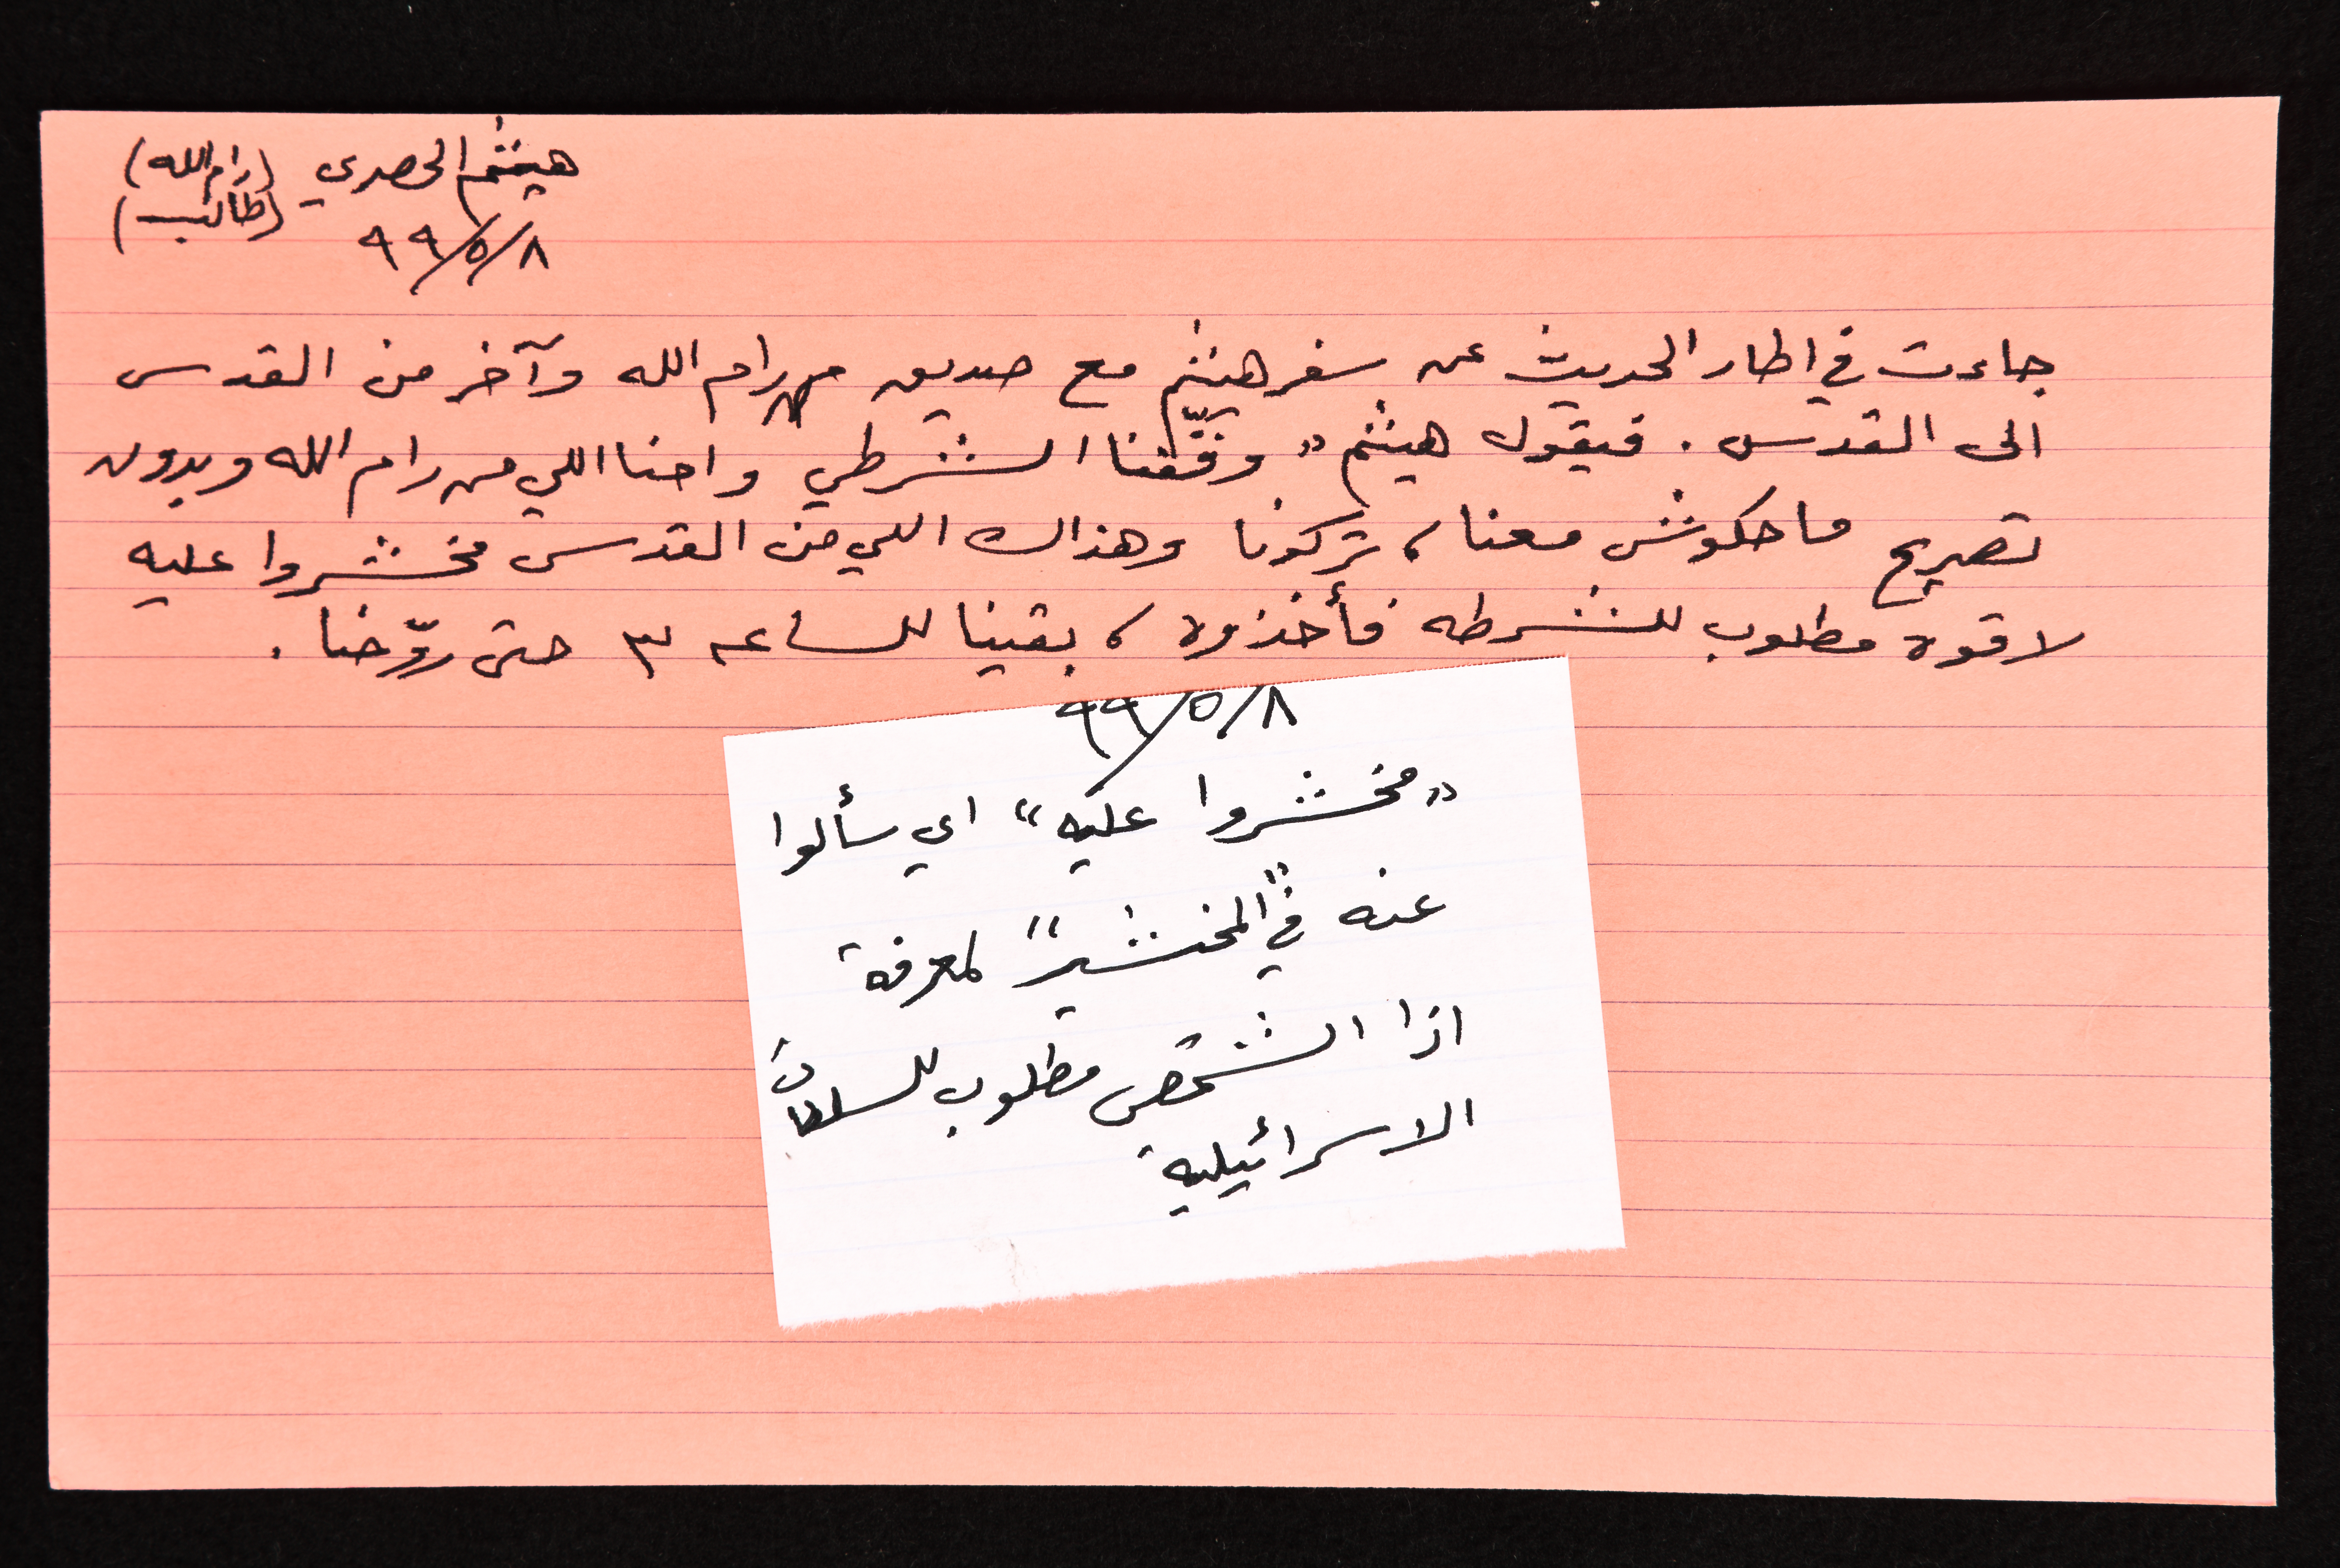 هيثم الحصري (رام الله)
(طالب)
٩٩/٥/٨
جاءت في اطار الحديث عن سفر هيثم مع صديق من رام الله وآخر من القدس
الى القدس . فيقول هيثم « وقّفنا الشرطي واحنا اللي من رام الله وبدون
تصريح ما حكوش معنا ، تركونا وهذاك اللي من القدس مخشروا عليه
لاقوه مطلوب للشرطه فأخذوه ، بقينا للساعه ٣ حتى روّحنا .
٩٩/٥/٨
«مخشروا عليه» اي سألوا
عنه في "المخشير" لمعرفة
اذا الشخص مطلوب للسلطات
الاسرائيلية